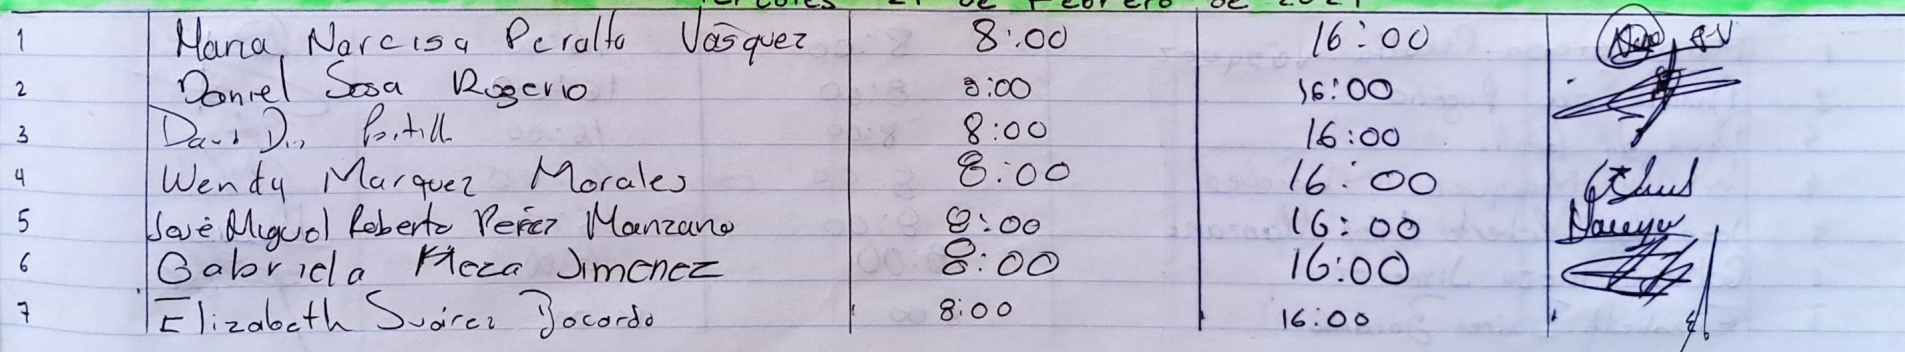 de Febrero de
1 Maria Narcisa Peralta Vasquez 8:00 16:00
2 Daniel Sosa Rogerio 8:00 16:00
3 David 8:00 16:00
4 Wendy Marquez Morales 8:00 16:00
5 José Miguel Roberto Perez Manzano 8:00 16:00
6 Gabriela Meza Jimenez 8:00 16:00
7 Elizabeth Suárez Bocardo 8:00 16:00